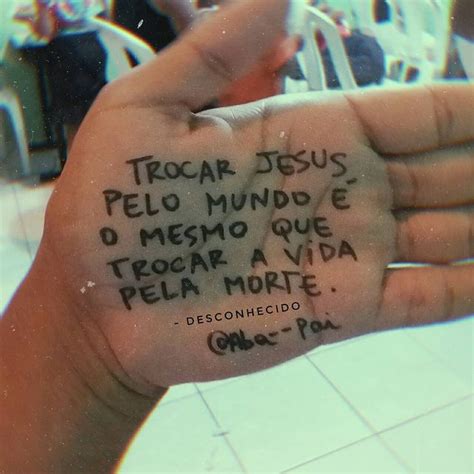 TROCAR JESUS
PELO MUNDO É
O MESMO QUE
TROCAR A ViDA
PELA MORTE.
- DESCONHECIDO
@Aba--Pai